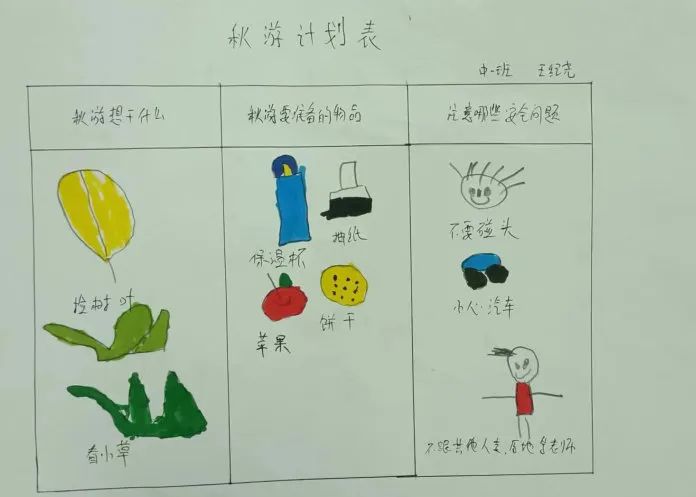 秋游计划表
中一班 王纪尧
秋游想干什么
秋游要准备的物品
注意哪些安全问题
捡树叶
看小草
保温杯
抽纸
苹果
饼干
不要碰头
小心汽车
不跟其他人走,紧跟老师